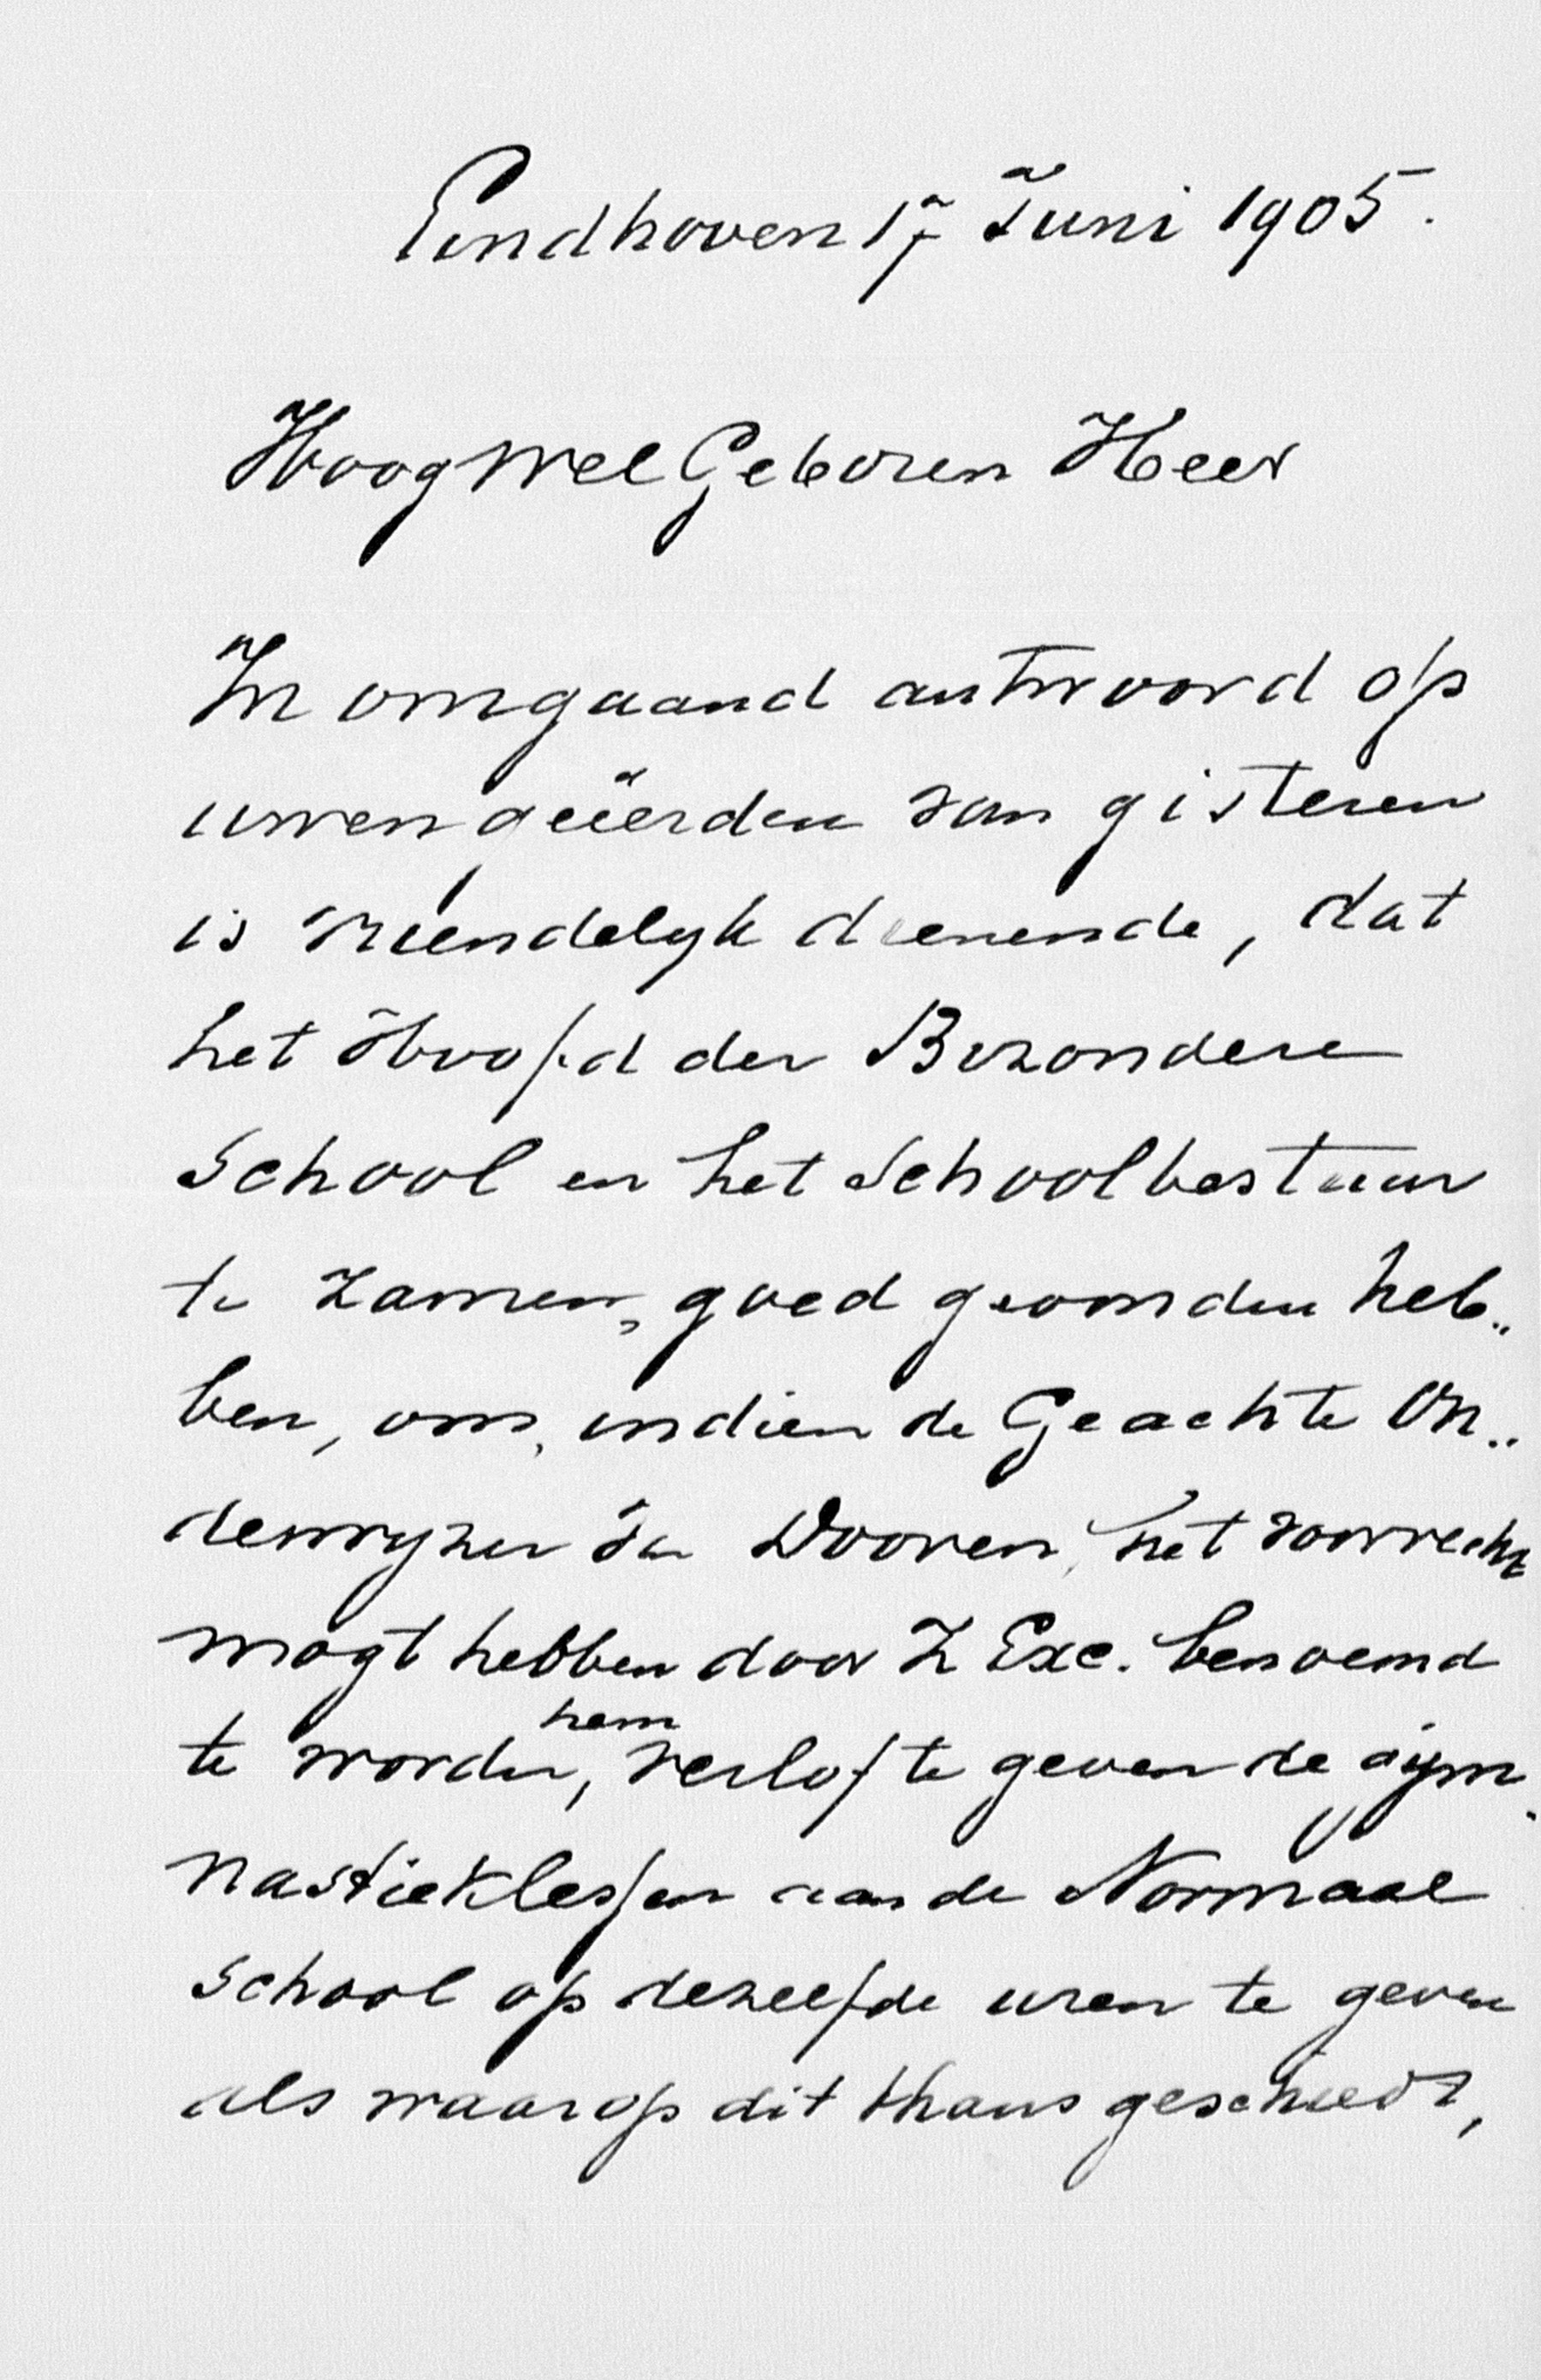 Eindhoven 17 Juni 1905.
HoogWelGeboren Heer
In omgaand antwoord op
uwen geëerden van gisteren
is vriendelyk dienende, dat
het Hoofd der Bizondere
School en het Schoolbestuur
te zamen, goed gevonden heb„
ben, om, indien de Geachte On„
derwyzer Van Dooren, het voorrecht
mogt hebben door Z Exc. benoemd
te worden, hem verlof te geven de gym„
nastieklessen aan de Normaal
School op dezelfde uren te geven
als waarop dit thans geschiedt,